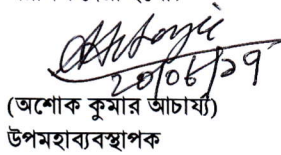 20/06/19
(অশোক কুমার আচার্য্য)
উপমহাব্যবস্থাপক